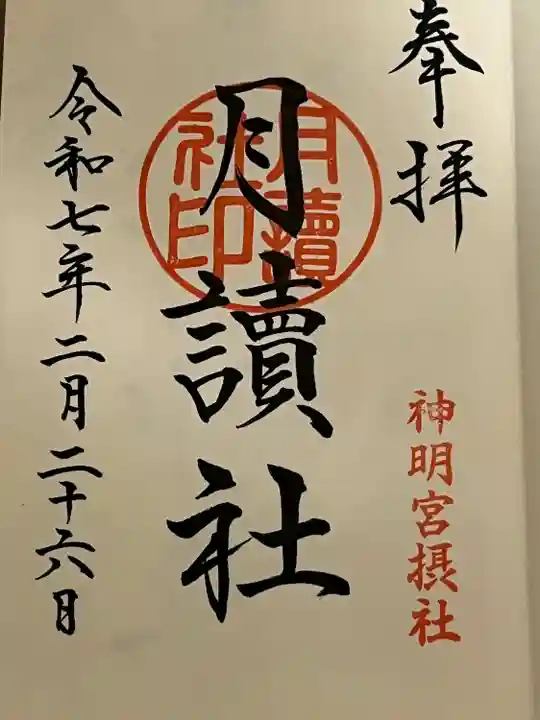 奉拝
神明宮摂社
月讀社
月讀社印
令和七年二月二十六日